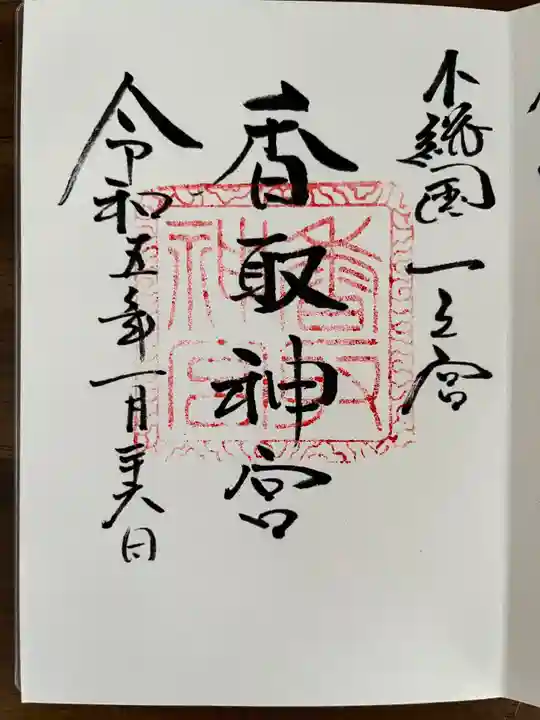 下総国一之宮
香取神宮
香取神宮
令和五年一月二十八日